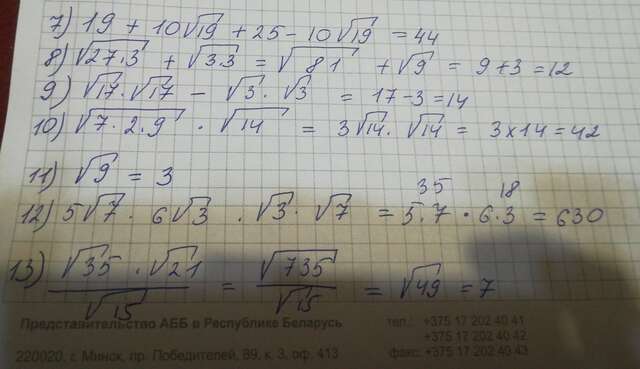 7) 19 + 10√19 + 25 - 10√19 = 44
8) √27·3 + √3·3 = √81 + √9 = 9+3 = 12
9) √17·√17 - √3·√3 = 17-3 = 14
10) √7·2·9 · √14 = 3√14·√14 = 3×14 = 42
11) √9 = 3
35 18
12) 5√7 · 6√3 · √3 · √7 = 5·7 · 6·3 = 630
13) √35 · √21 / √15 = √735 / √15 = √49 = 7
Представительство АББ в Республике Беларусь
220020, г. Минск, пр. Победителей, 89, к. 3, оф. 413
тел.: +375 17 202 40 41
+375 17 202 40 42
факс: +375 17 202 40 43